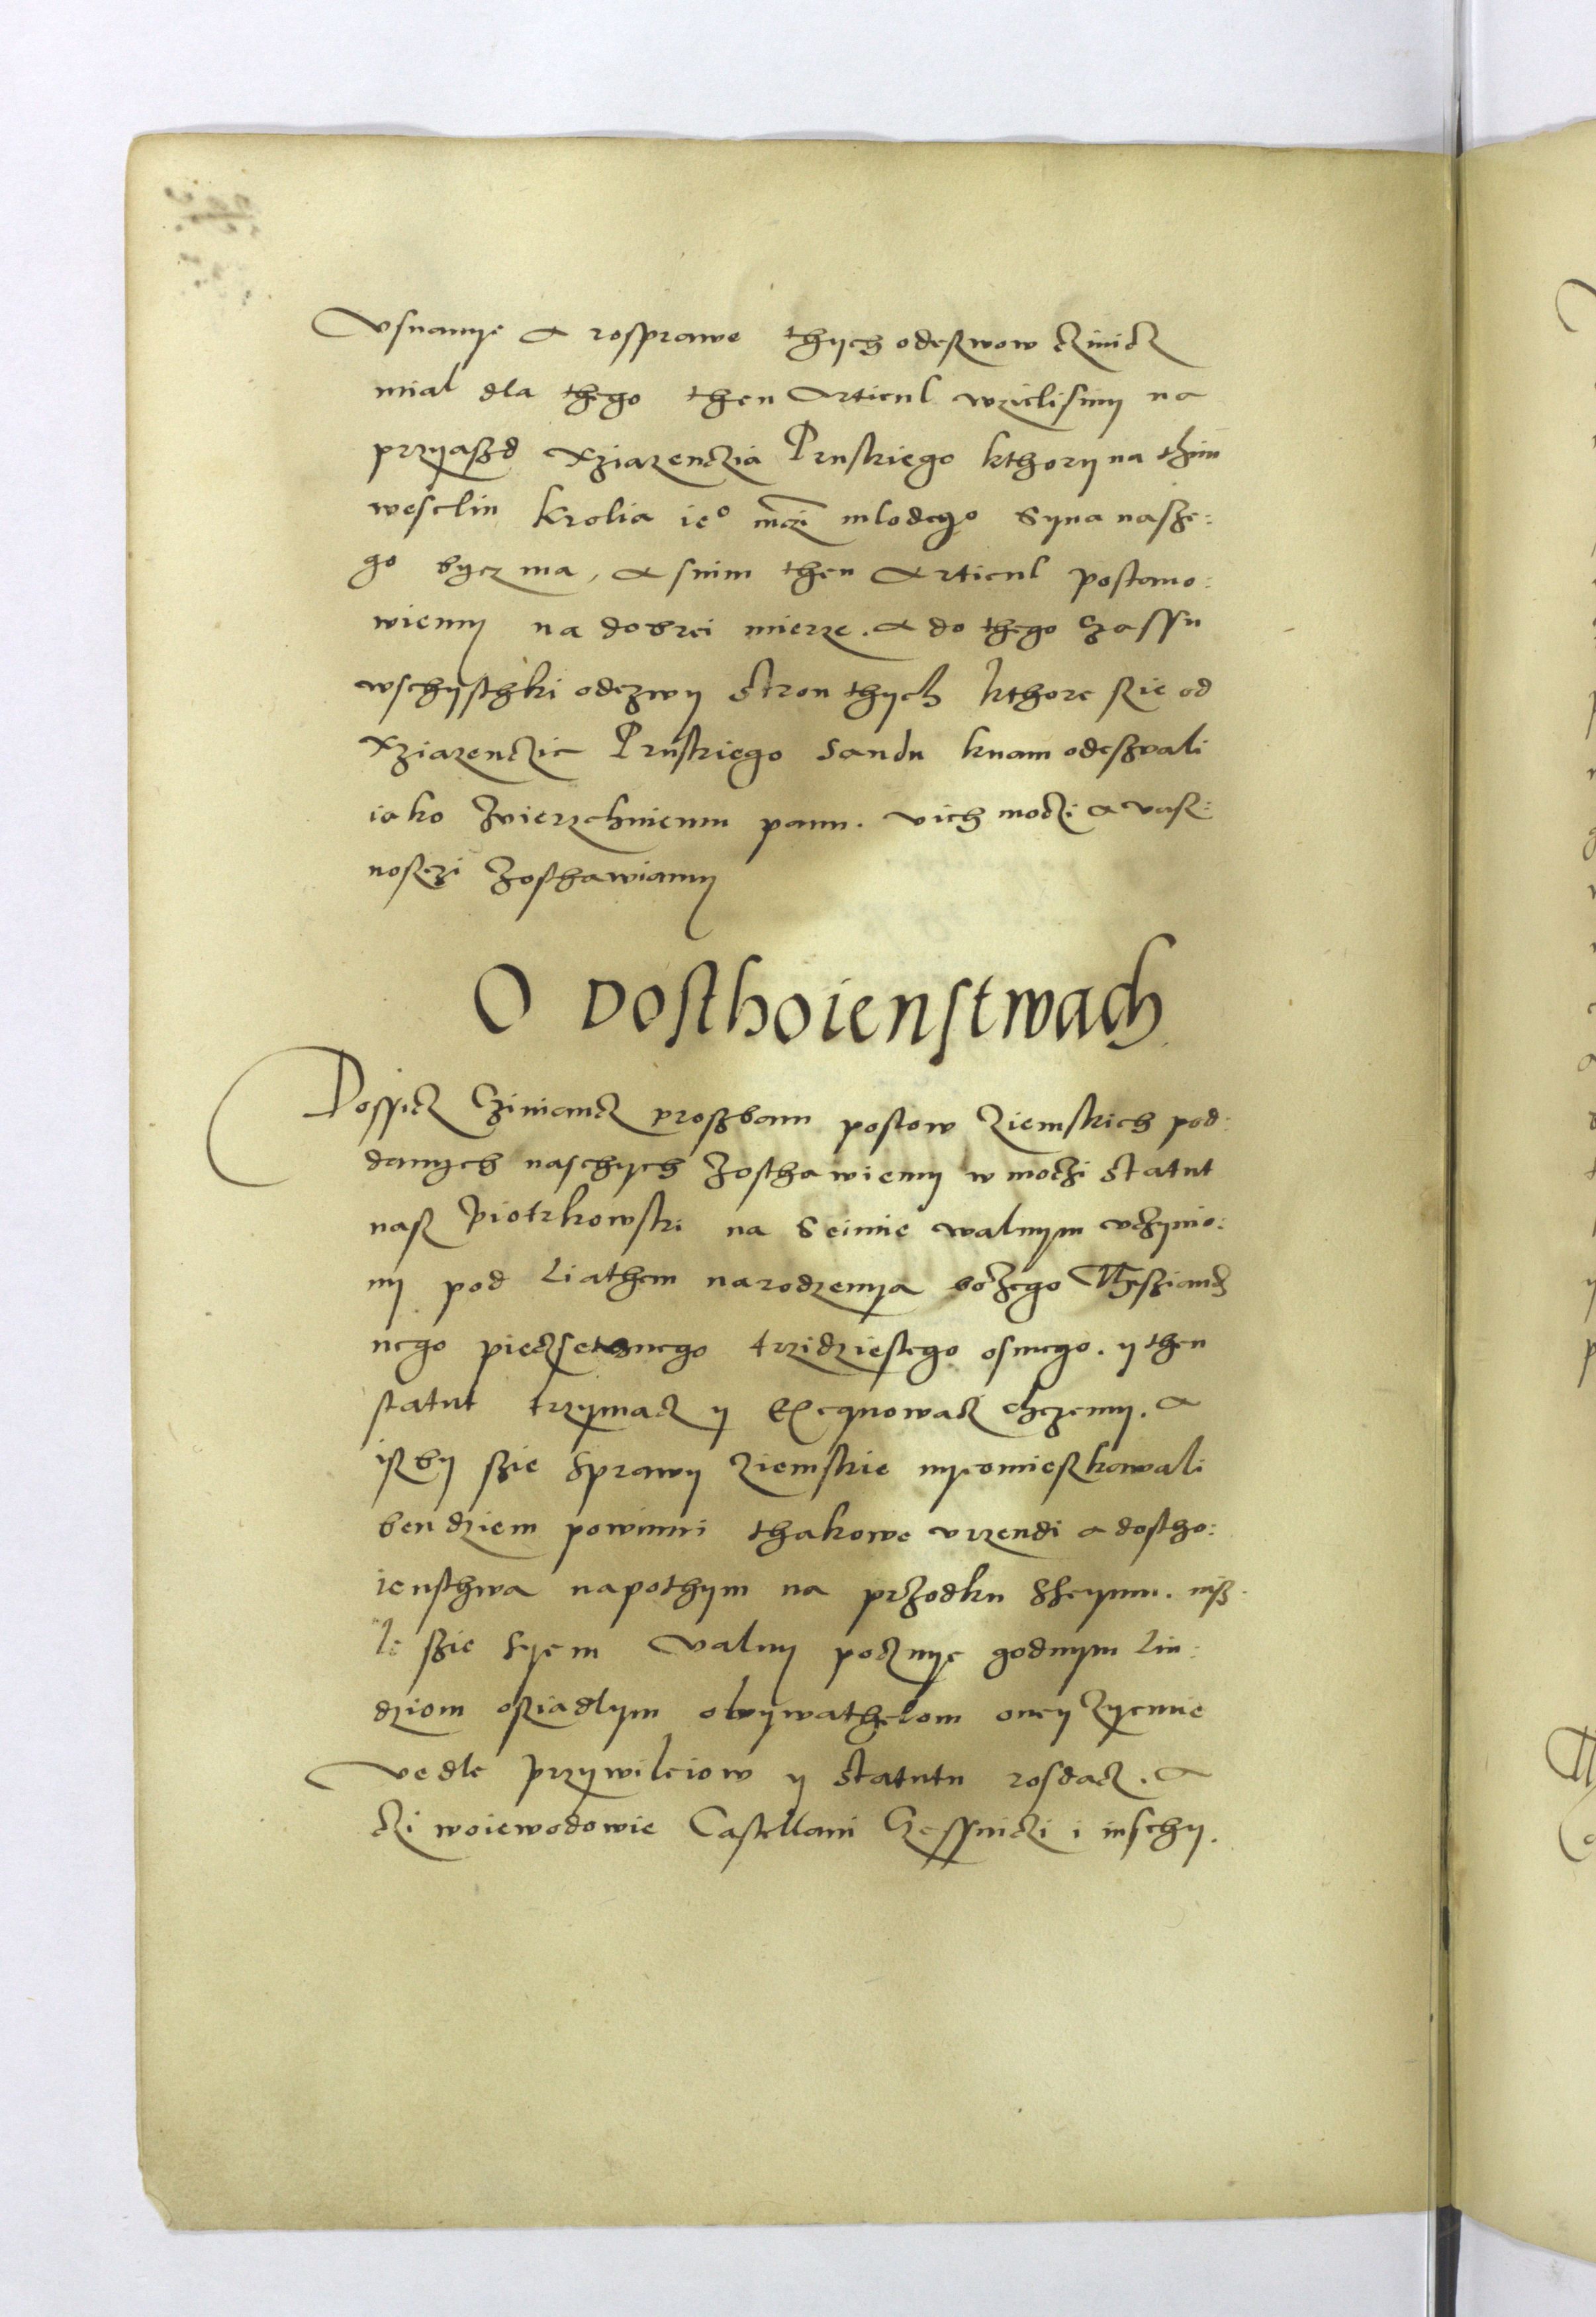 Vsnanye a rosprawe thych odeszwow czinicz
mial dla thego then Articul wzielismy na
przyaszd Xziazenczia Pruskiego kthory na thim
weselin Krolia ieº mczi mlodego Syna nasze:
go bycz ma, a snim then Articul postano:
wiemy na dobrei mierze. a do thego czassu
wschysthki odezwy stron thych kthore szie od
Xziazenczie Pruskiego Sandu knam odeszwali
iako Zwierzchniemu panu. vich moczi a vasz:
noszczi Zosthawiamy
O Dosthoienstwach
Dossicz Cziniancz proszbam poslow Ziemskich pod:
danych naschych Zosthawiemy w moczi statut
nasz Piotrkowski na Seimie walnym vczynio:
ny pod Liathem narodzenya bozego Thesziancz
nego pieczsethnego trzidziestego osmego. y then
statut trzymacz y Exequowacz chczemy. a
iszby szie Sprawy Ziemskie nyeomieszkawali
bendziem powinni thakowe vrzendi a dostho:
iensthwa napothym na przodku Sseymu. nisz
le szie Syem Valny pocznye godnym Liu:
dziom osziadlym obywathelom oney Zyemie
vedle przywileiow y statutu rosdacz. a
czi woiewodowie Castellani Czessniczi i inschy.